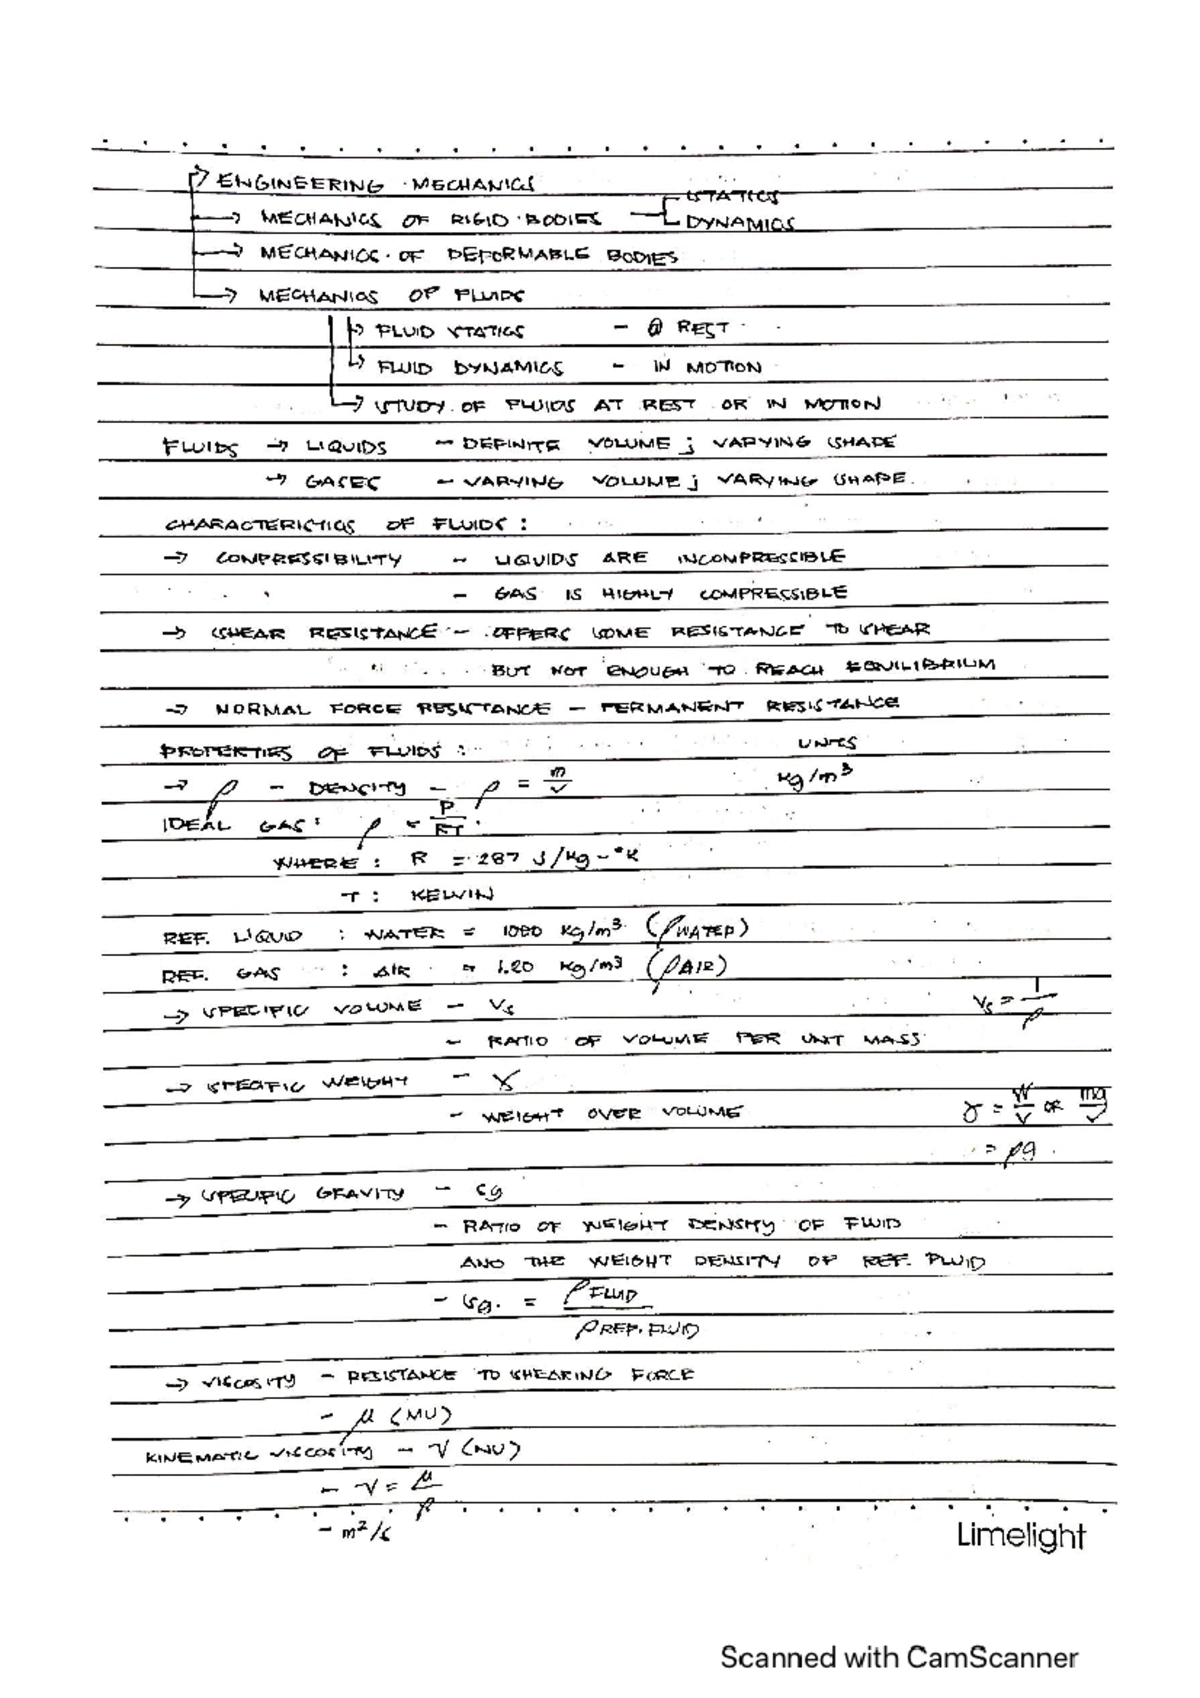 → ENGINEERING MECHANICS
→ MECHANICS OF RIGID BODIES STATICS
DYNAMICS
→ MECHANICS OF DEFORMABLE BODIES
→ MECHANICS OF FLUIDS
→ FLUID STATICS - @ REST
→ FLUID DYNAMICS - IN MOTION
→ STUDY OF FLUIDS AT REST OR IN MOTION
FLUIDS → LIQUIDS - DEFINITE VOLUME ; VARYING SHAPE
→ GASES - VARYING VOLUME ; VARYING SHAPE
CHARACTERISTICS OF FLUIDS :
→ COMPRESSIBILITY - LIQUIDS ARE INCOMPRESSIBLE
- GAS IS HIGHLY COMPRESSIBLE
→ SHEAR RESISTANCE - OFFERS SOME RESISTANCE TO SHEAR
BUT NOT ENOUGH TO REACH EQUILIBRIUM
→ NORMAL FORCE RESISTANCE - PERMANENT RESISTANCE
PROPERTIES OF FLUIDS : UNITS
→ ρ - DENSITY - ρ = m/V kg/m³
IDEAL GAS : ρ = P/RT
WHERE : R = 287 J/kg-°K
T : KELVIN
REF. LIQUID : WATER = 1000 kg/m³ (ρWATER)
REF. GAS : AIR = 1.20 kg/m³ (ρAIR)
→ SPECIFIC VOLUME - Vs Vs = 1/ρ
- RATIO OF VOLUME PER UNIT MASS
→ SPECIFIC WEIGHT - γ
- WEIGHT OVER VOLUME γ = W/V OR mg/V
= ρg
→ SPECIFIC GRAVITY - sg
- RATIO OF WEIGHT DENSITY OF FLUID
AND THE WEIGHT DENSITY OF REF. FLUID
- sg. = ρFLUID
ρREF. FLUID
→ VISCOSITY - RESISTANCE TO SHEARING FORCE
- μ (MU)
KINEMATIC VISCOSITY - ν (NU)
- ν = μ/ρ
- m²/s
Limelight
Scanned with CamScanner